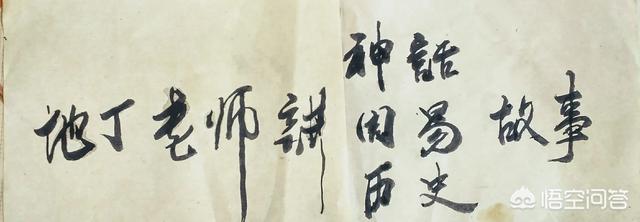 地丁老师講
神話
周易
历史
故事
悟空问答